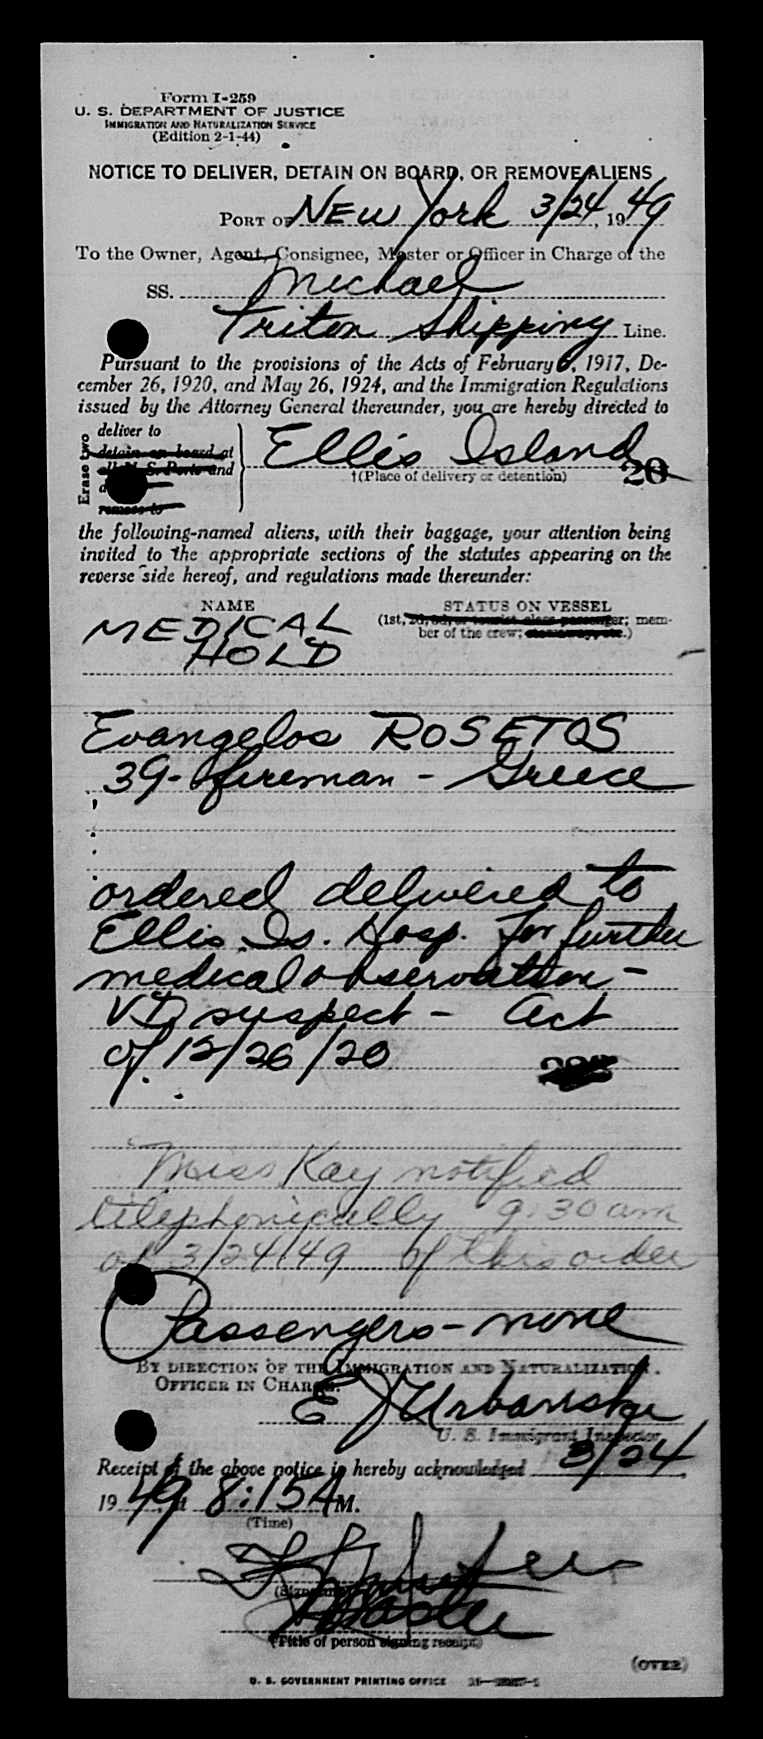 Form I-259
U. S. DEPARTMENT OF JUSTICE
IMMIGRATION AND NATURALIZATION SERVICE
(Edition 2-1-44)
NOTICE TO DELIVER, DETAIN ON BOARD, OR REMOVE ALIENS
PORT OF NEW York 3/24, 1949
To the Owner, Agent, Consignee, Master or Officer in Charge of the
SS. Michael
Triton Shipping Line.
Pursuant to the provisions of the Acts of February 5, 1917, De-
cember 26, 1920, and May 26, 1924, and the Immigration Regulations
issued by the Attorney General thereunder, you are hereby directed to
Erase two
deliver to
detain on board at
all U. S. Ports and
remove to
Ellis Island
†(Place of delivery or detention)
20
the following-named aliens, with their baggage, your attention being
invited to the appropriate sections of the statutes appearing on the
reverse side hereof, and regulations made thereunder:
NAME
STATUS ON VESSEL
(1st, 2d, 3d, or tourist class passenger; mem-
ber of the crew; stowaway, etc.)
MEDICAL
HOLD
Evangelos ROSETOS
39 - fireman - Greece
ordered delivered to
Ellis Is. Hosp. for further
medical observation -
VD suspect - Act
of 12/26/20
Miss Kay notified
telephonically 9:30 am
on 3/24/49 of this order
Passengers - none
BY DIRECTION OF THE IMMIGRATION AND NATURALIZATION
OFFICER IN CHARGE.
E J Urbanski
U. S. Immigrant Inspector
Receipt of the above notice is hereby acknowledged 3/24
1949 at 8:15 A M.
(Time)
(Signature)
Master
(Title of person signing receipt)
(OVER)
U. S. GOVERNMENT PRINTING OFFICE